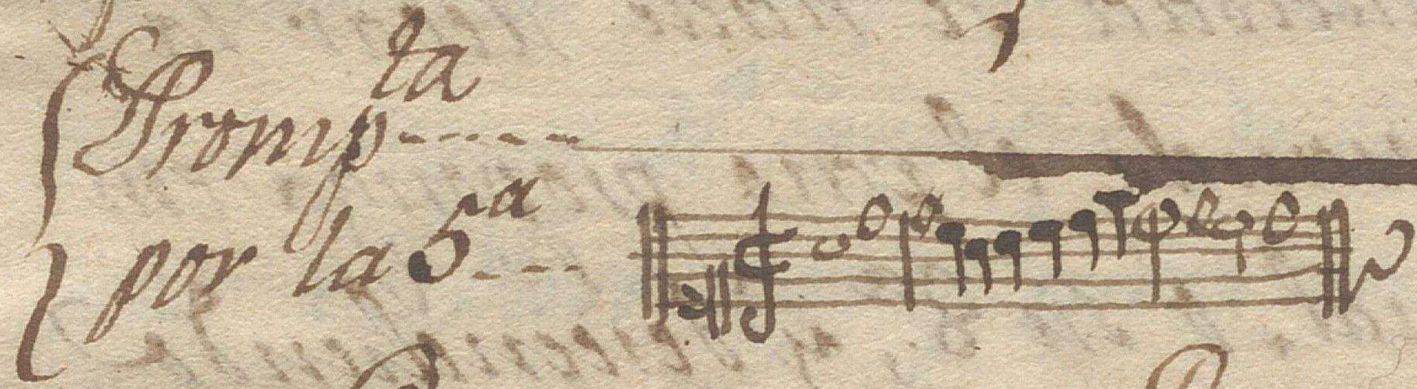 Promp^ta
por la 5^a